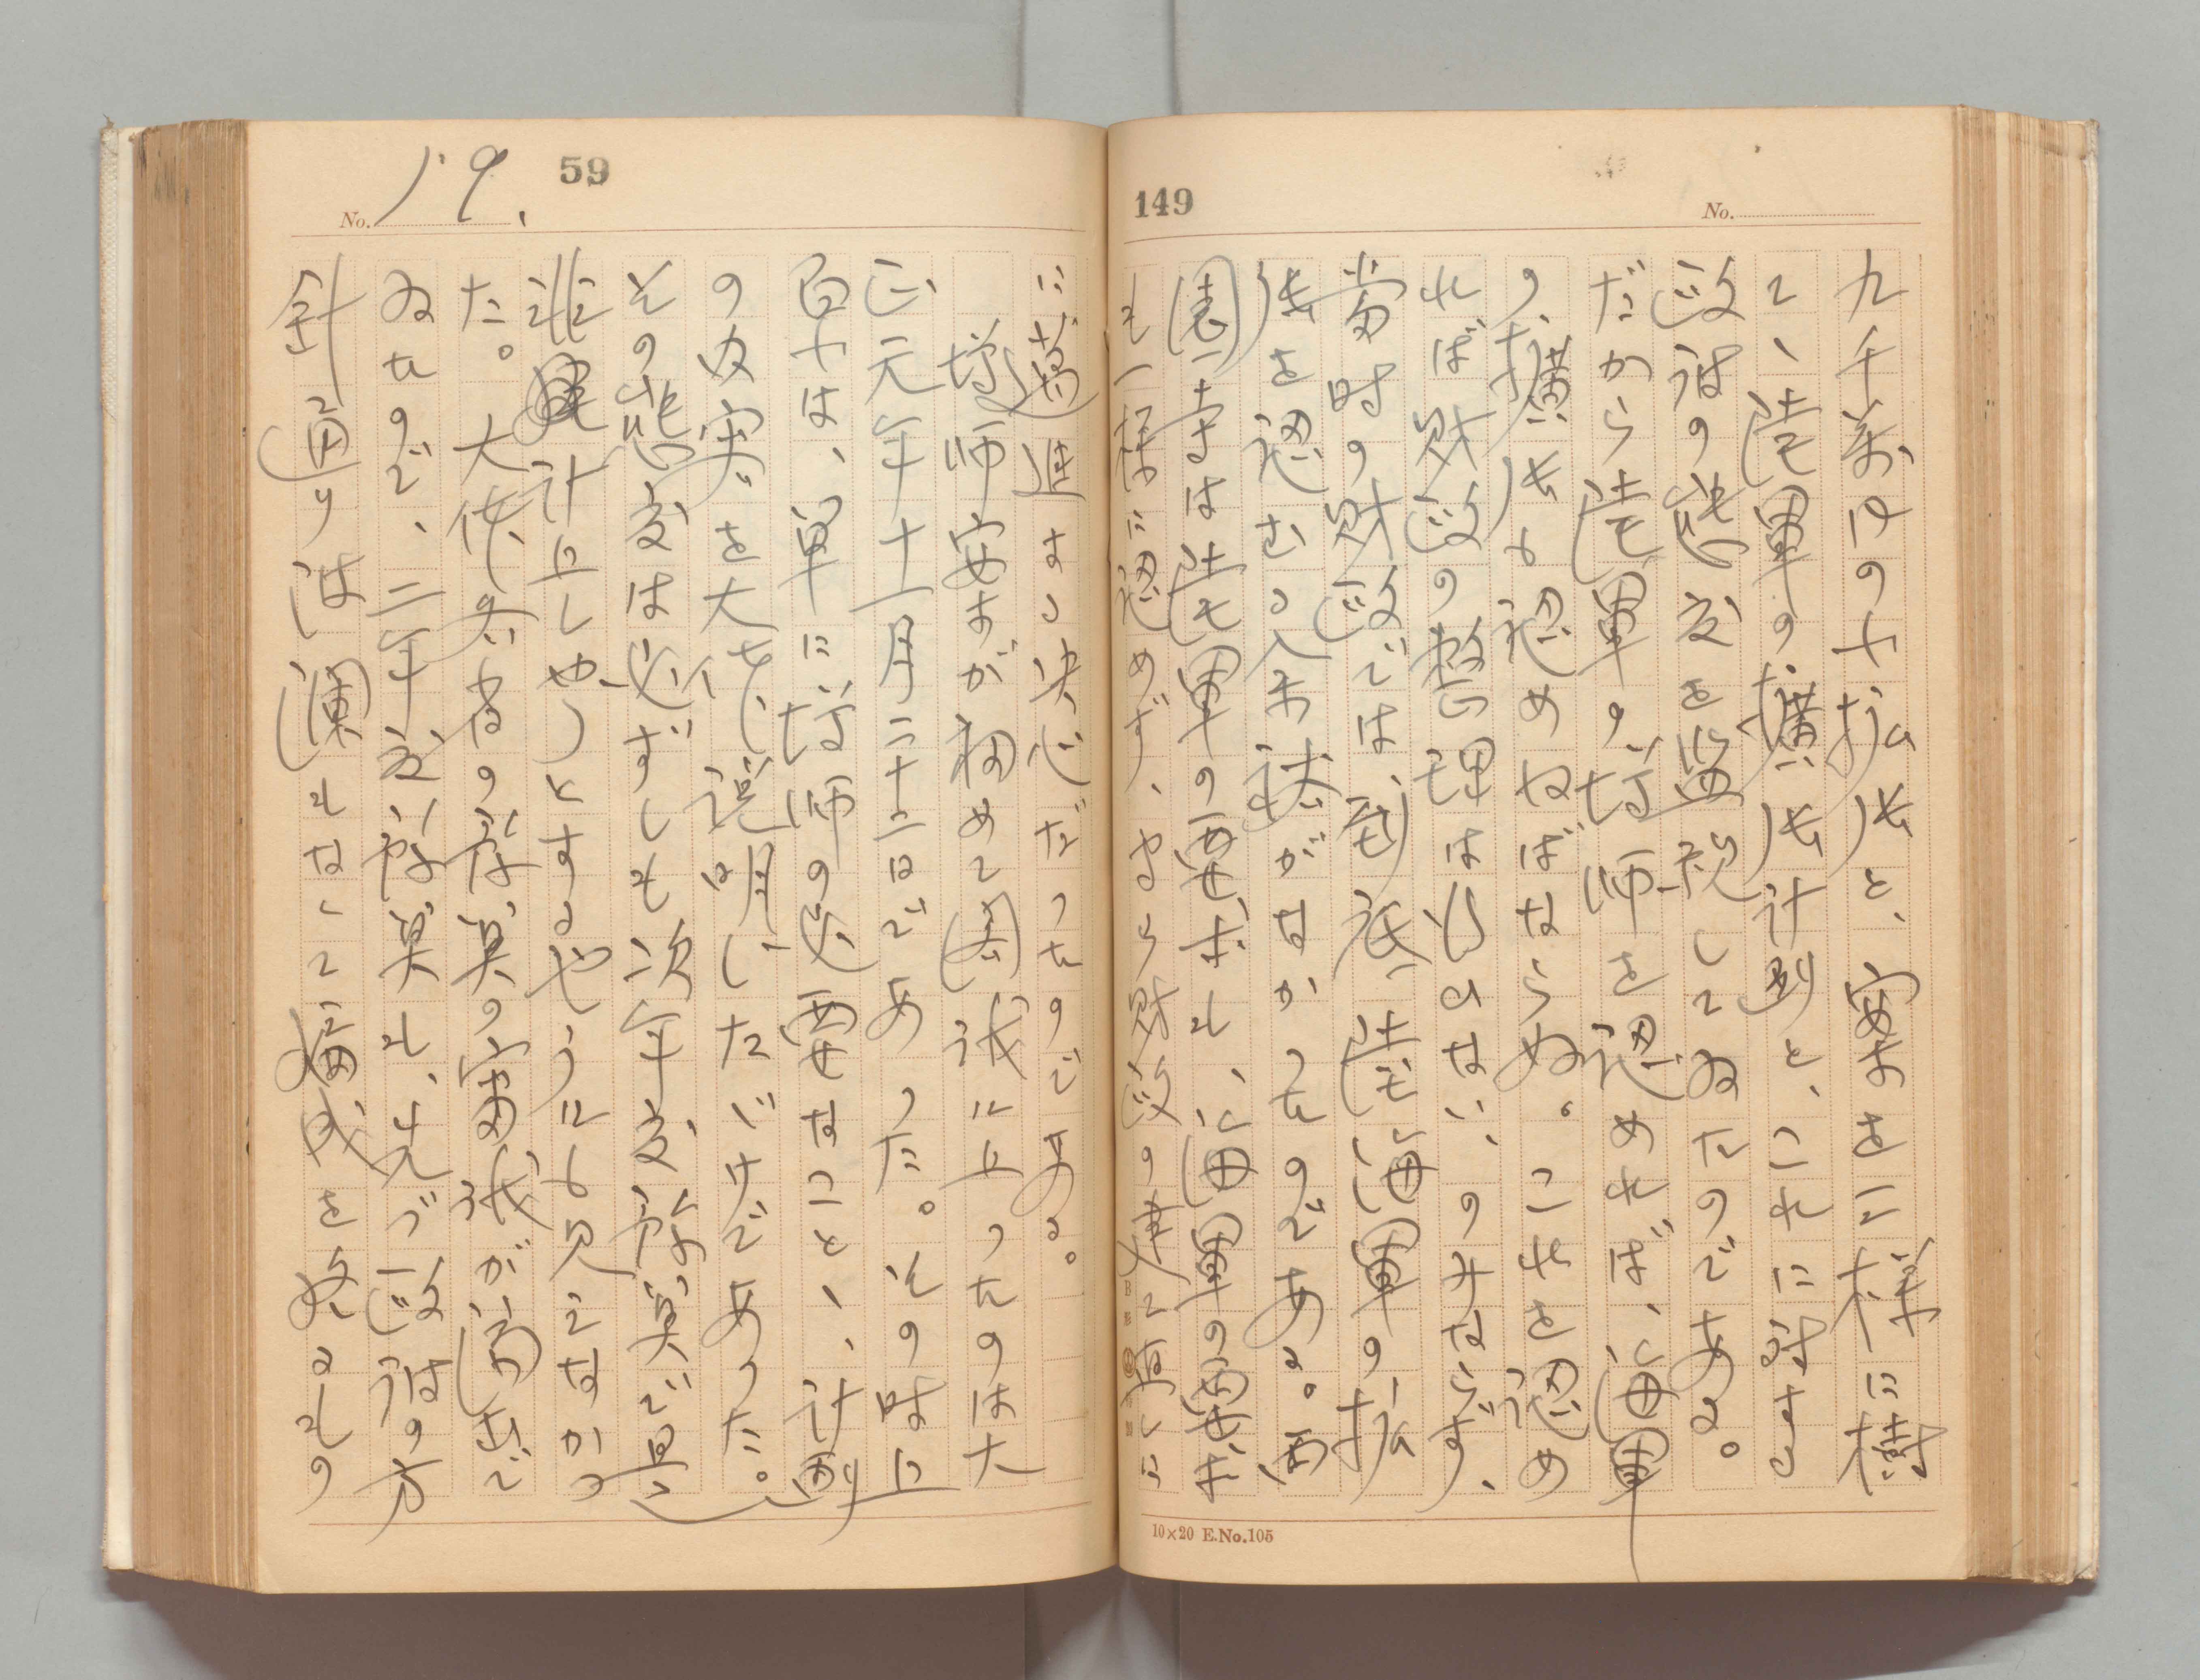 149
No.
九千萬円の大拡張と、安すを二様に構
て、陸軍の擴張計劃と、これに対する
政治の態度を監視してゐたのである。
だから陸軍の増師を認めれば、海軍
の擴張も認めねばならぬ。これを認め
れば財政の整理は出来ない、のみならず、
當時の財政では、到底、陸海軍の拡
張を認むる余裕がなかつたのである。西
園寺は陸軍の要求も、海軍の要求
も一様に認めず、専ら財政の建て直しに
10×20 E.No.105
59
No. 59.
に邁進する決心だつたのである。
増師案が初めて閣議に上つたのは大
正元年十一月二十二日であつた。その時上
原は、単に増師の必要なこと、計劃
の内容を大体説明しただけであつた。
その態度は必ずしも次年度予算で是
非計上しやうとする也うにも見えなかつ
た。大体各省の予算の審議が済ん
ゐたので、二年度予算も、先づ政治の方
針通りに漕もなくて編成を終るもの